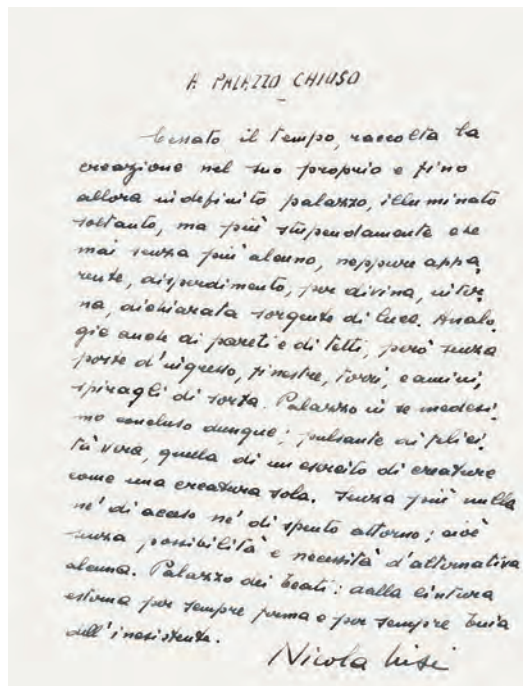 A PALAZZO CHIUSO
Cessato il tempo, raccolta la
creazione nel suo proprio e fino
allora indefinito palazzo, illuminato
soltanto, ma più stupendamente che
mai senza più alcuno, neppure appa,
rente, disperdimento, per divina, inter,
na, dichiarata sorgente di luce. Analo,
gie anche di pareti e di tetti, però senza
porte d'ingresso, finestre, torri, camini,
spiragli di sorta. Palazzo in se medesi,
mo concluso dunque; pulsante di felici,
tà viva, quella di un esercito di creature
come una creatura sola. Senza più nulla
né di acceso né di spento attorno; cioè
senza possibilità e necessità d'alternativa
alcuna. Palazzo dei beati: dalla cintura
esterna per sempre ferma e per sempre buia
dell'inesistente.
Nicola Lisi